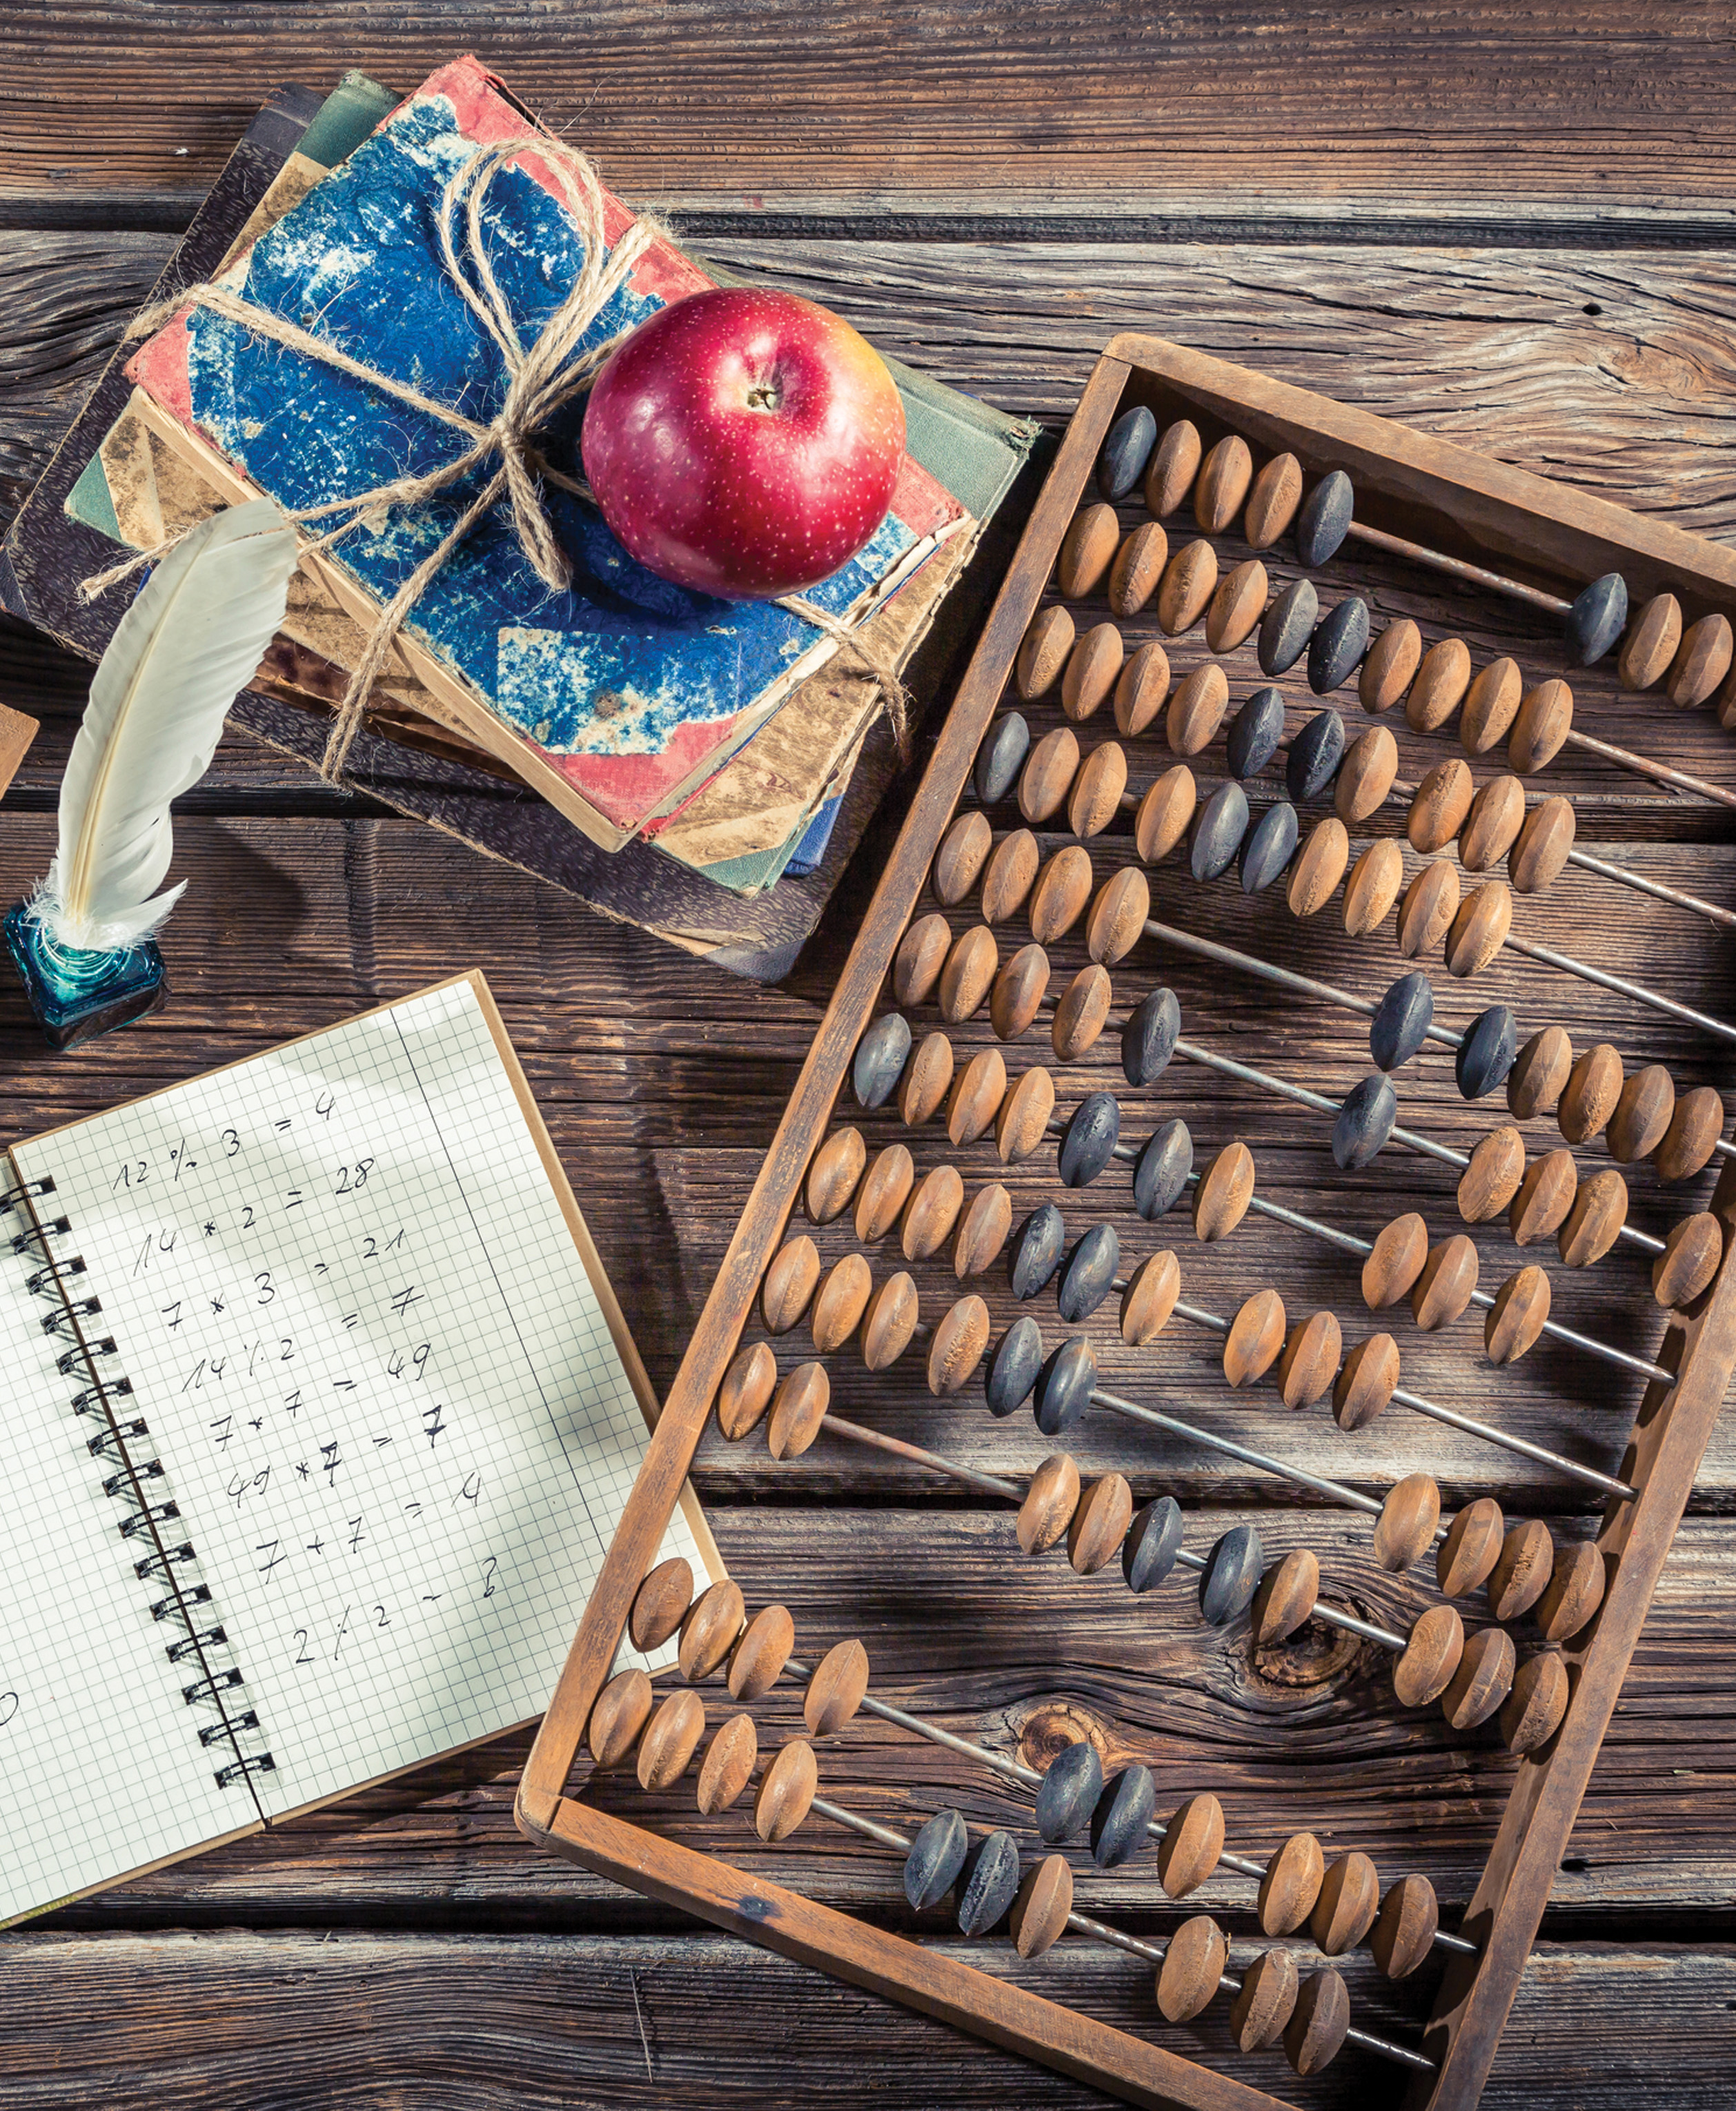 12 % 3 = 4
14 * 2 = 28
7 * 3 = 21
14 % 2 = 7
7 * 7 = 49
49 * 7 = 7
7 + 7 = 14
2 % 2 - 3
0